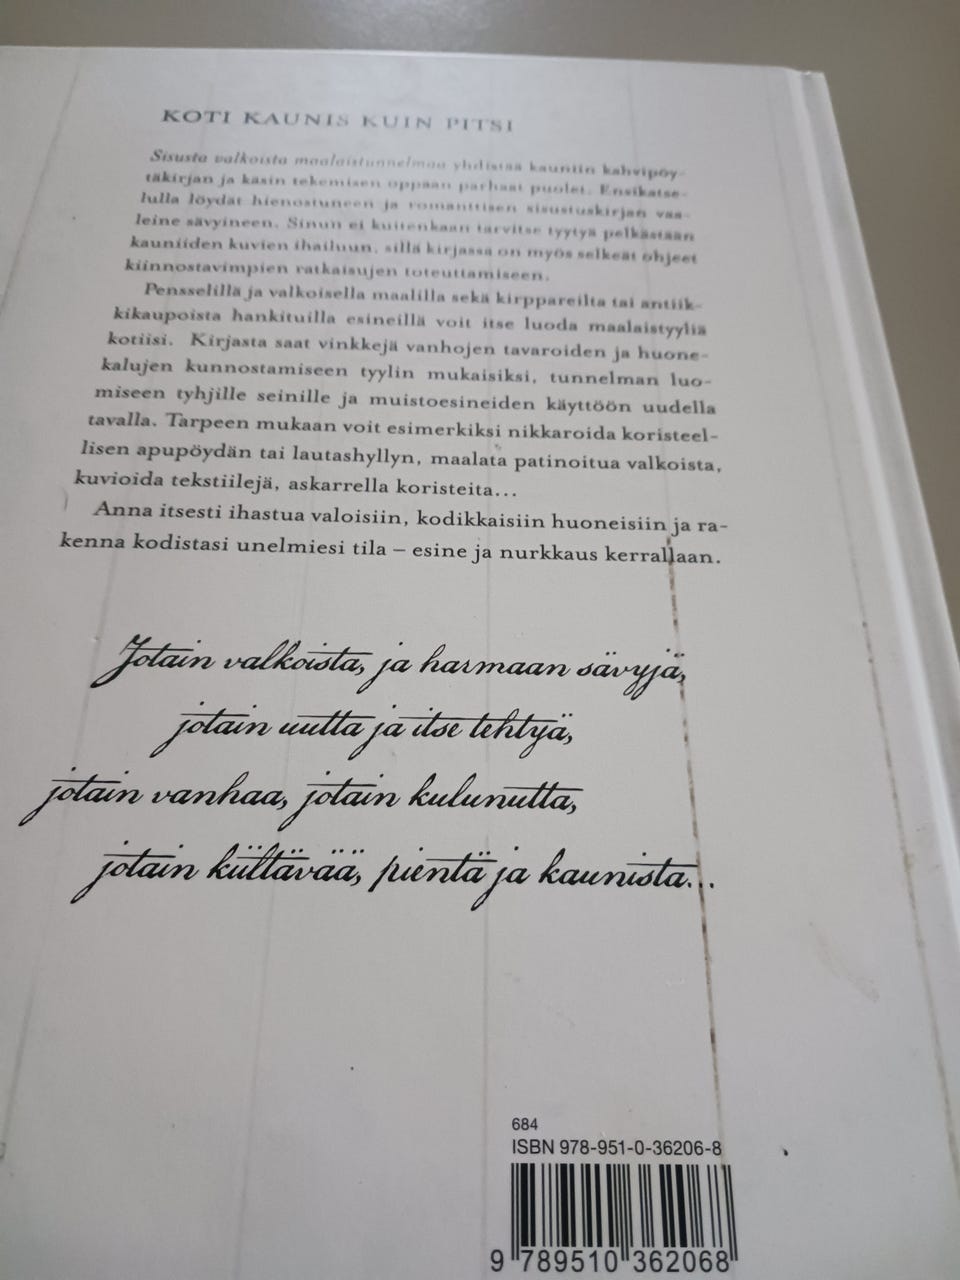 KOTI KAUNIS KUIN PITSI
Sisusta valkoista maalaistunnelmaa yhdistää kauniin kahvipöy-
täkirjan ja käsin tekemisen oppaan parhaat puolet. Ensikatse-
lulla löydät hienostuneen ja romanttisen sisustuskirjan vaa-
leine sävyineen. Sinun ei kuitenkaan tarvitse tyytyä pelkästään
kauniiden kuvien ihailuun, sillä kirjassa on myös selkeät ohjeet
kiinnostavimpien ratkaisujen toteuttamiseen.
Pensselillä ja valkoisella maalilla sekä kirppareilta tai antiik-
kikaupoista hankituilla esineillä voit itse luoda maalaistyyliä
kotiisi. Kirjasta saat vinkkejä vanhojen tavaroiden ja huone-
kalujen kunnostamiseen tyylin mukaisiksi, tunnelman luo-
miseen tyhjille seinille ja muistoesineiden käyttöön uudella
tavalla. Tarpeen mukaan voit esimerkiksi nikkaroida koristeel-
lisen apupöydän tai lautashyllyn, maalata patinoitua valkoista,
kuvioida tekstiilejä, askarrella koristeita...
Anna itsesti ihastua valoisiin, kodikkaisiin huoneisiin ja ra-
kenna kodistasi unelmiesi tila – esine ja nurkkaus kerrallaan.
Jotain valkoista, ja harmaan sävyjä,
jotain uutta ja itse tehtyä,
jotain vanhaa, jotain kulunutta,
jotain kiiltävää, pientä ja kaunista...
684
ISBN 978-951-0-36206-8
9 789510 362068